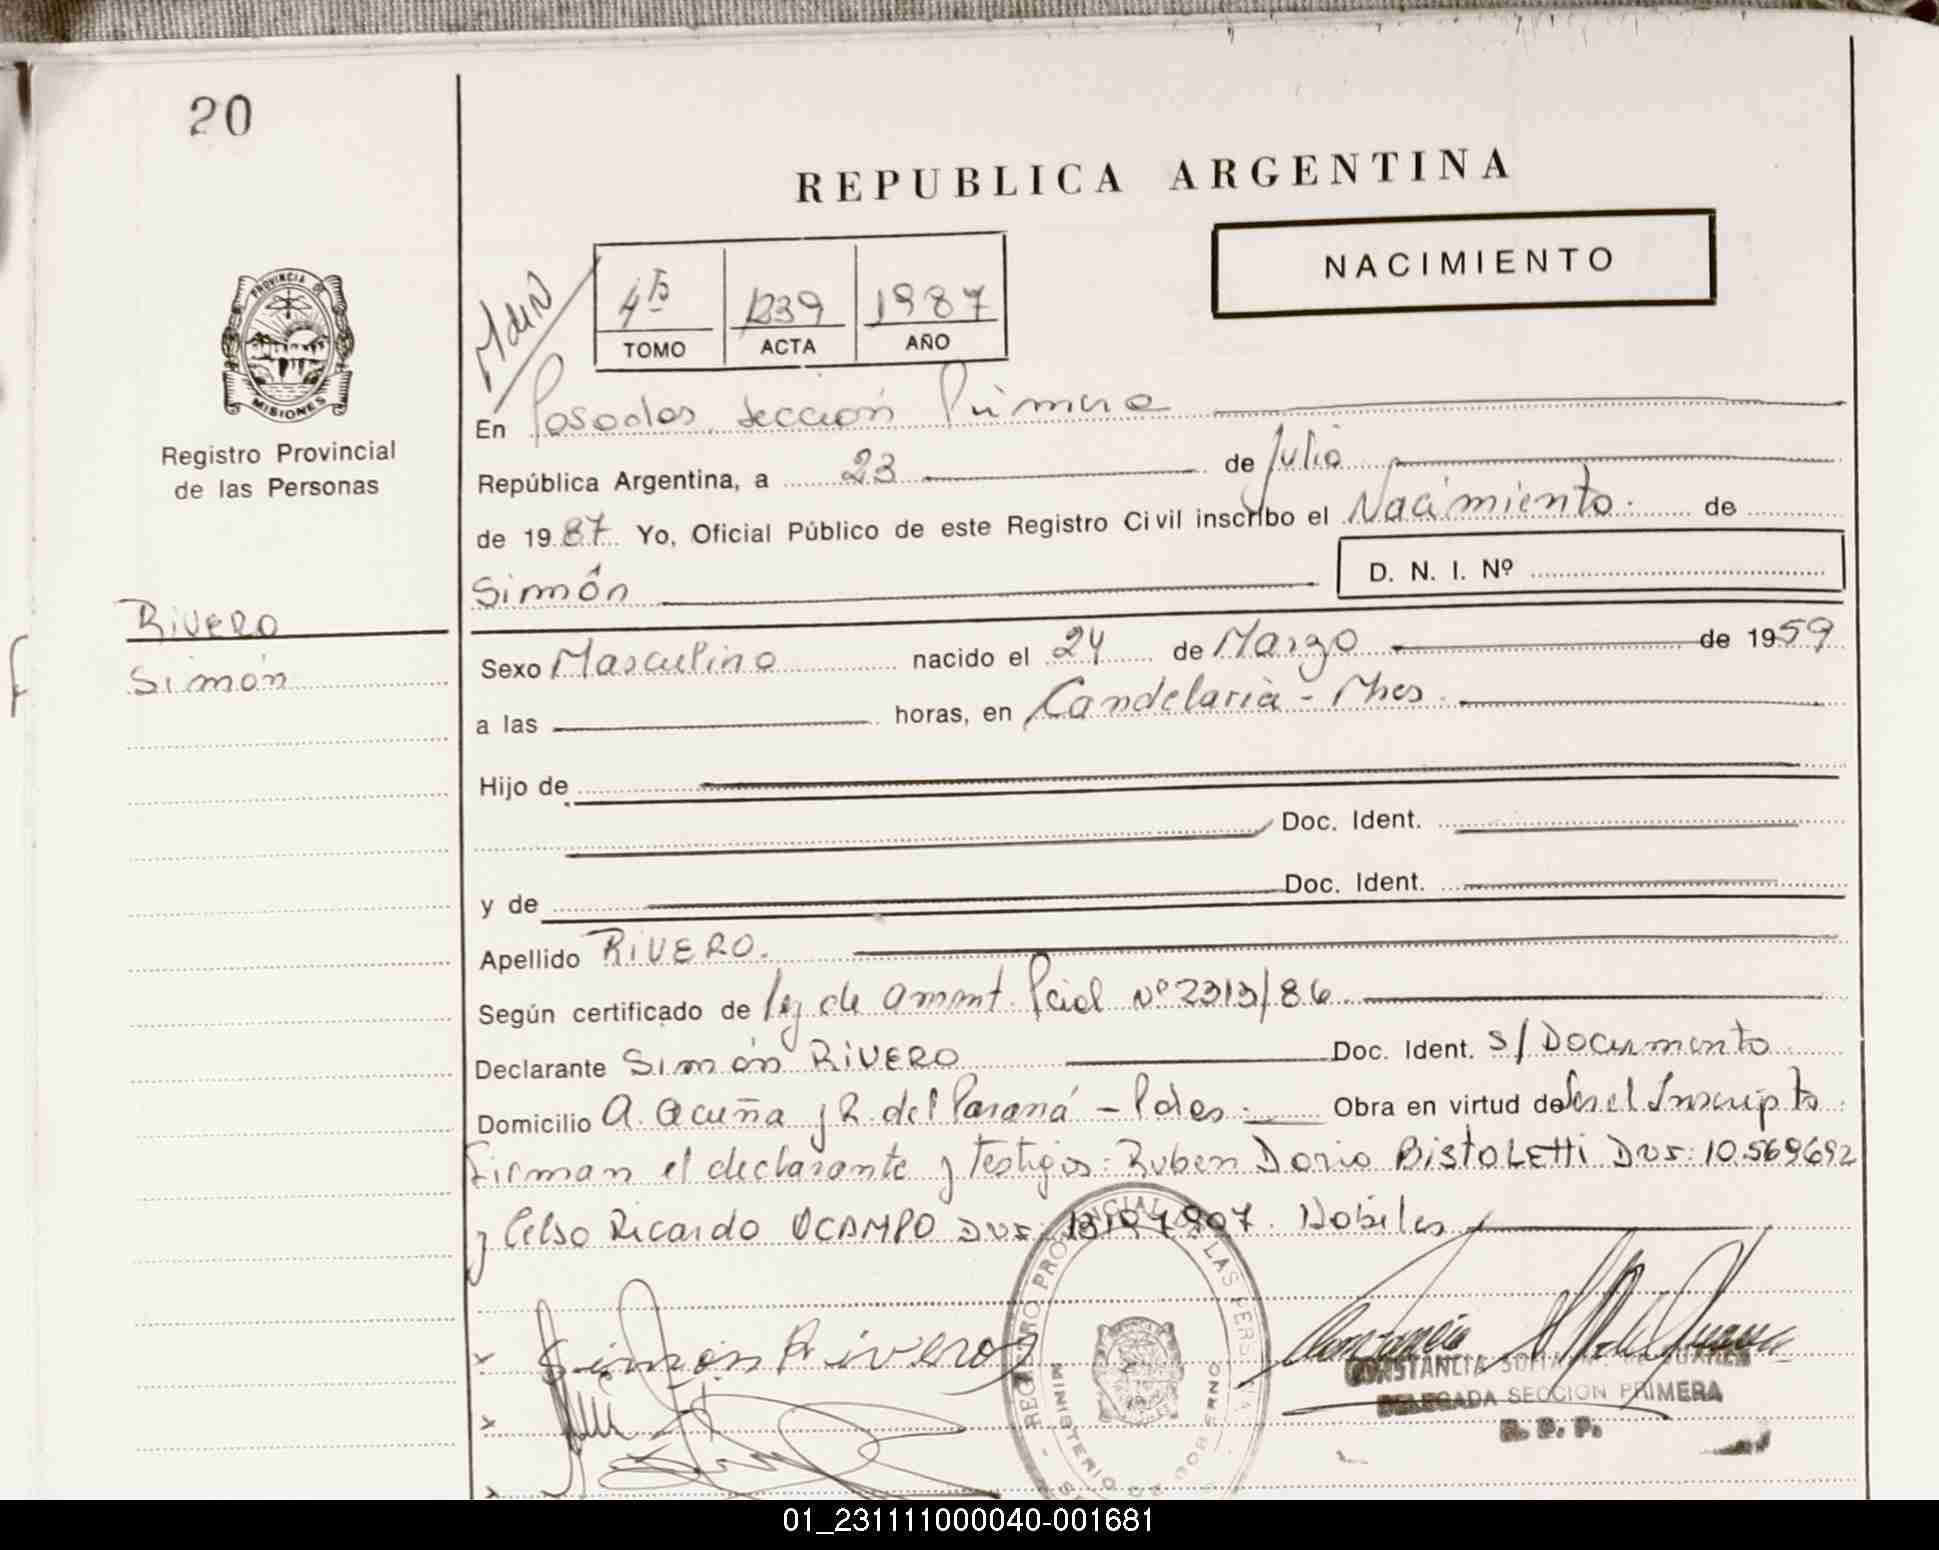 20
REPUBLICA ARGENTINA
NACIMIENTO
4º 1239 1987
TOMO ACTA AÑO
PROVINCIA DE
MISIONES
Registro Provincial
de las Personas
En Posadas, Sección Primera
República Argentina, a 23 de Julio
de 1987 Yo, Oficial Público de este Registro Civil inscribo el Nacimiento de
Simón D. N. I. Nº
RIVERO
Simón
Sexo Masculino nacido el 24 de Marzo de 1959
a las horas, en Candelaria - Mnes.
Hijo de
Doc. Ident.
y de Doc. Ident.
Apellido RIVERO.
Según certificado de ley de amnt. Pcial Nº 2313/86
Declarante Simón RIVERO Doc. Ident. S/ Documento
Domicilio A. Acuña y R. del Paraná - Pdas. Obra en virtud de Ser el Inscripto.
Firman el declarante y testigos: Ruben Dario BISTOLETTI DNI: 10.569692
y Celso Ricardo OCAMPO DNI: Hábiles
Simón Rivero
REGISTRO PROVINCIAL DE LAS PERSONAS
MINISTERIO DE GOBIERNO
CONSTANCIA
DELEGADA SECCION PRIMERA
R. P. P.
01_231111000040-001681